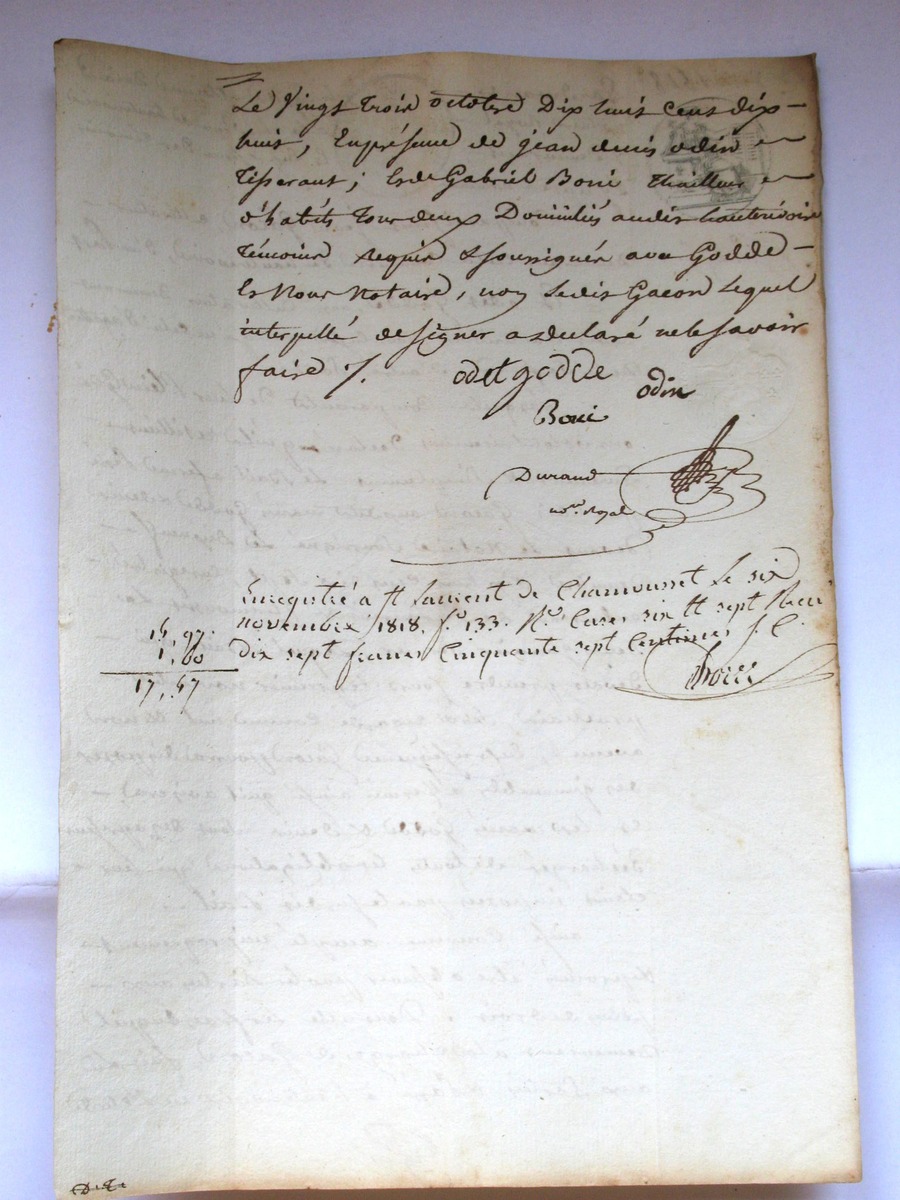 Le Vingt trois octobre Dix huit cent dix-
huit, En présence de jean denis odin
Tisserant; Et de Gabriel Boni Thailleur
d'habits Tous deux Domiciliés audit hauterivoire
Témoins requis & soussignés avec Godde -
Et Nous Notaire, non Ledit Gacon Lequel
interpellé de signer a declaré ne le savoir
faire /.
odet godde
odin
Boni
Durand
nore. Royal
Enregistré a St Laurent de Chamousset Le six
novembre 1818. fo. 133. Ro. Cases six et sept Reçu
dix sept francs Cinquante sept Centimes
15, 97.
1, 60
17, 57